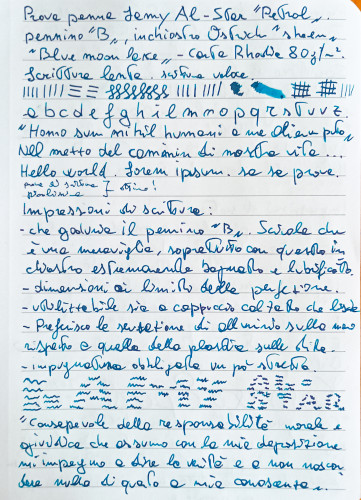 Prova penna Lamy Al-Star "Petrol",
pennino "B", inchiostro Ostrich "sheen"
"Blue moon lake", - carta Rhodia 80g/m².
Scrittura lenta. scrittura veloce.
a b c d e f g h i l m n o p q r s t u v z
"Homo sum nihil humani a me alienum puto"
Nel mezzo del cammin di nostra vita ...
Hello world. Lorem ipsum. sa sa prova.
prove di scrittura
ottimo!
Impressioni di scrittura:
- che goduria il pennino "B". Scivola che
è una meraviglia, soprattutto con questo in
chiostro estremamente bagnato e lubrificato
- dimensioni al limite della perfezione.
- utilizzabile sia a cappuccio calzato che
- Preferisco la sensazione di alluminio sulla mano
rispetto a quella della plastica sulle dita.
- impugnatura obbligata un pò stretta.
"Consapevole della responsabilità morale e
giuridica che assumo con la mia deposizione
mi impegno a dire la verità e a non nascon
dere nulla di quanto a mia conoscenza".